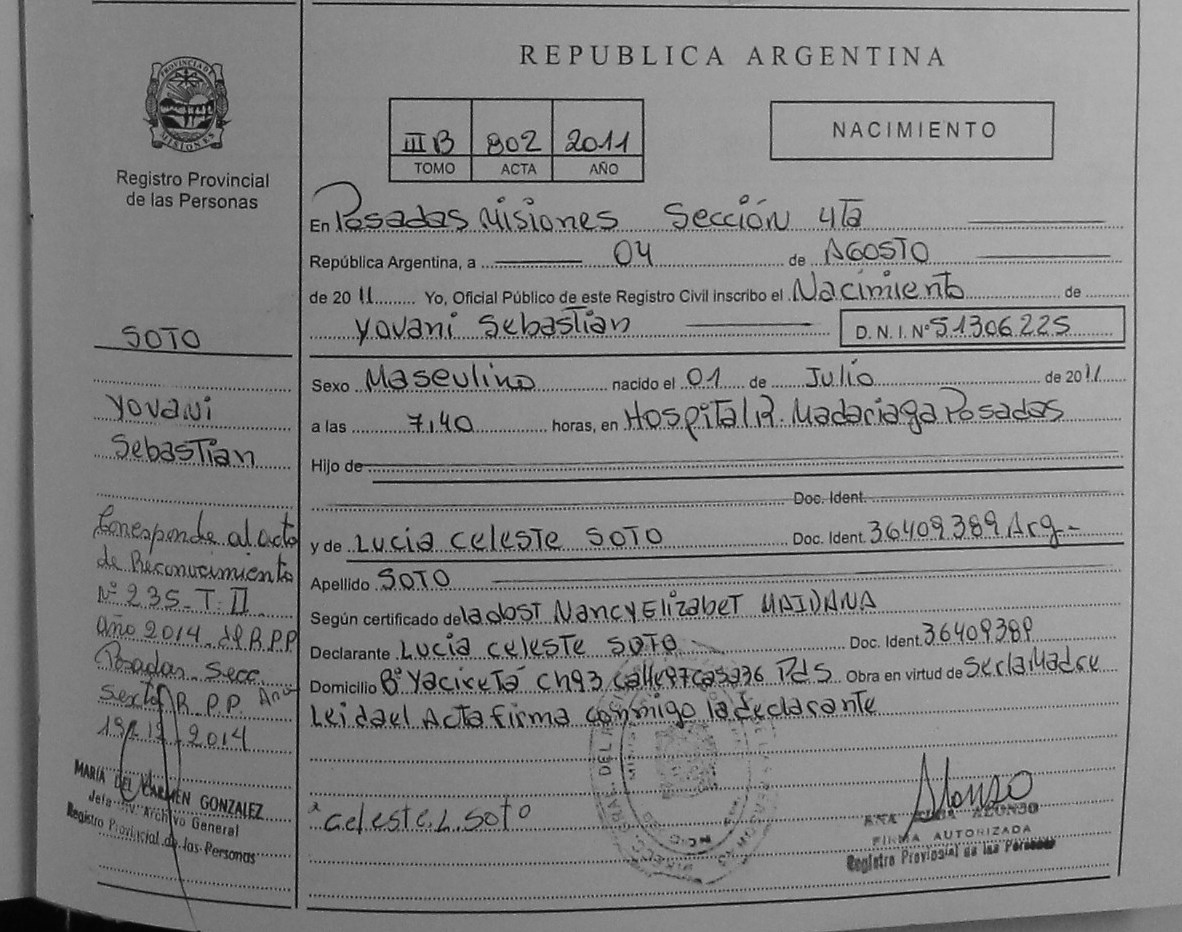 REPUBLICA ARGENTINA
PROVINCIA DE
MISIONES
Registro Provincial
de las Personas
III B 802 2011
TOMO ACTA AÑO
NACIMIENTO
En Posadas Misiones Sección 4ta
República Argentina, a 04 de AGOSTO
de 2011 Yo, Oficial Público de este Registro Civil inscribo el Nacimiento de
Yovani Sebastian D. N. I. Nº 51306225
Sexo Masculino nacido el 01 de Julio de 2011
a las 7,40 horas, en Hospital R. Madariaga Posadas
Hijo de
Doc. Ident.
y de Lucia Celeste SOTO Doc. Ident. 36409389 Arg.-
Apellido SOTO
Según certificado de la obst Nancy Elizabet MAIDANA
Declarante Lucia Celeste SOTO Doc. Ident. 36409389
Domicilio Bº Yacireta Ch93 Calle 97 Casa 36 Pds Obra en virtud de Ser la Madre
Leida el Acta firma conmigo la declarante
Celeste L. Soto
Alonso
ANA ALONSO
FIRMA AUTORIZADA
Registro Provincial de las Personas
SOTO
Yovani
Sebastian
Corresponde al acta
de Reconocimiento
Nº 235-T-II
Año 2014 del R.P.P
Posadas Secc.
Sexta R.P.P. Año
2014
MARÍA DEL CARMEN GONZALEZ
Jefa Div. Archivo General
Registro Provincial de las Personas